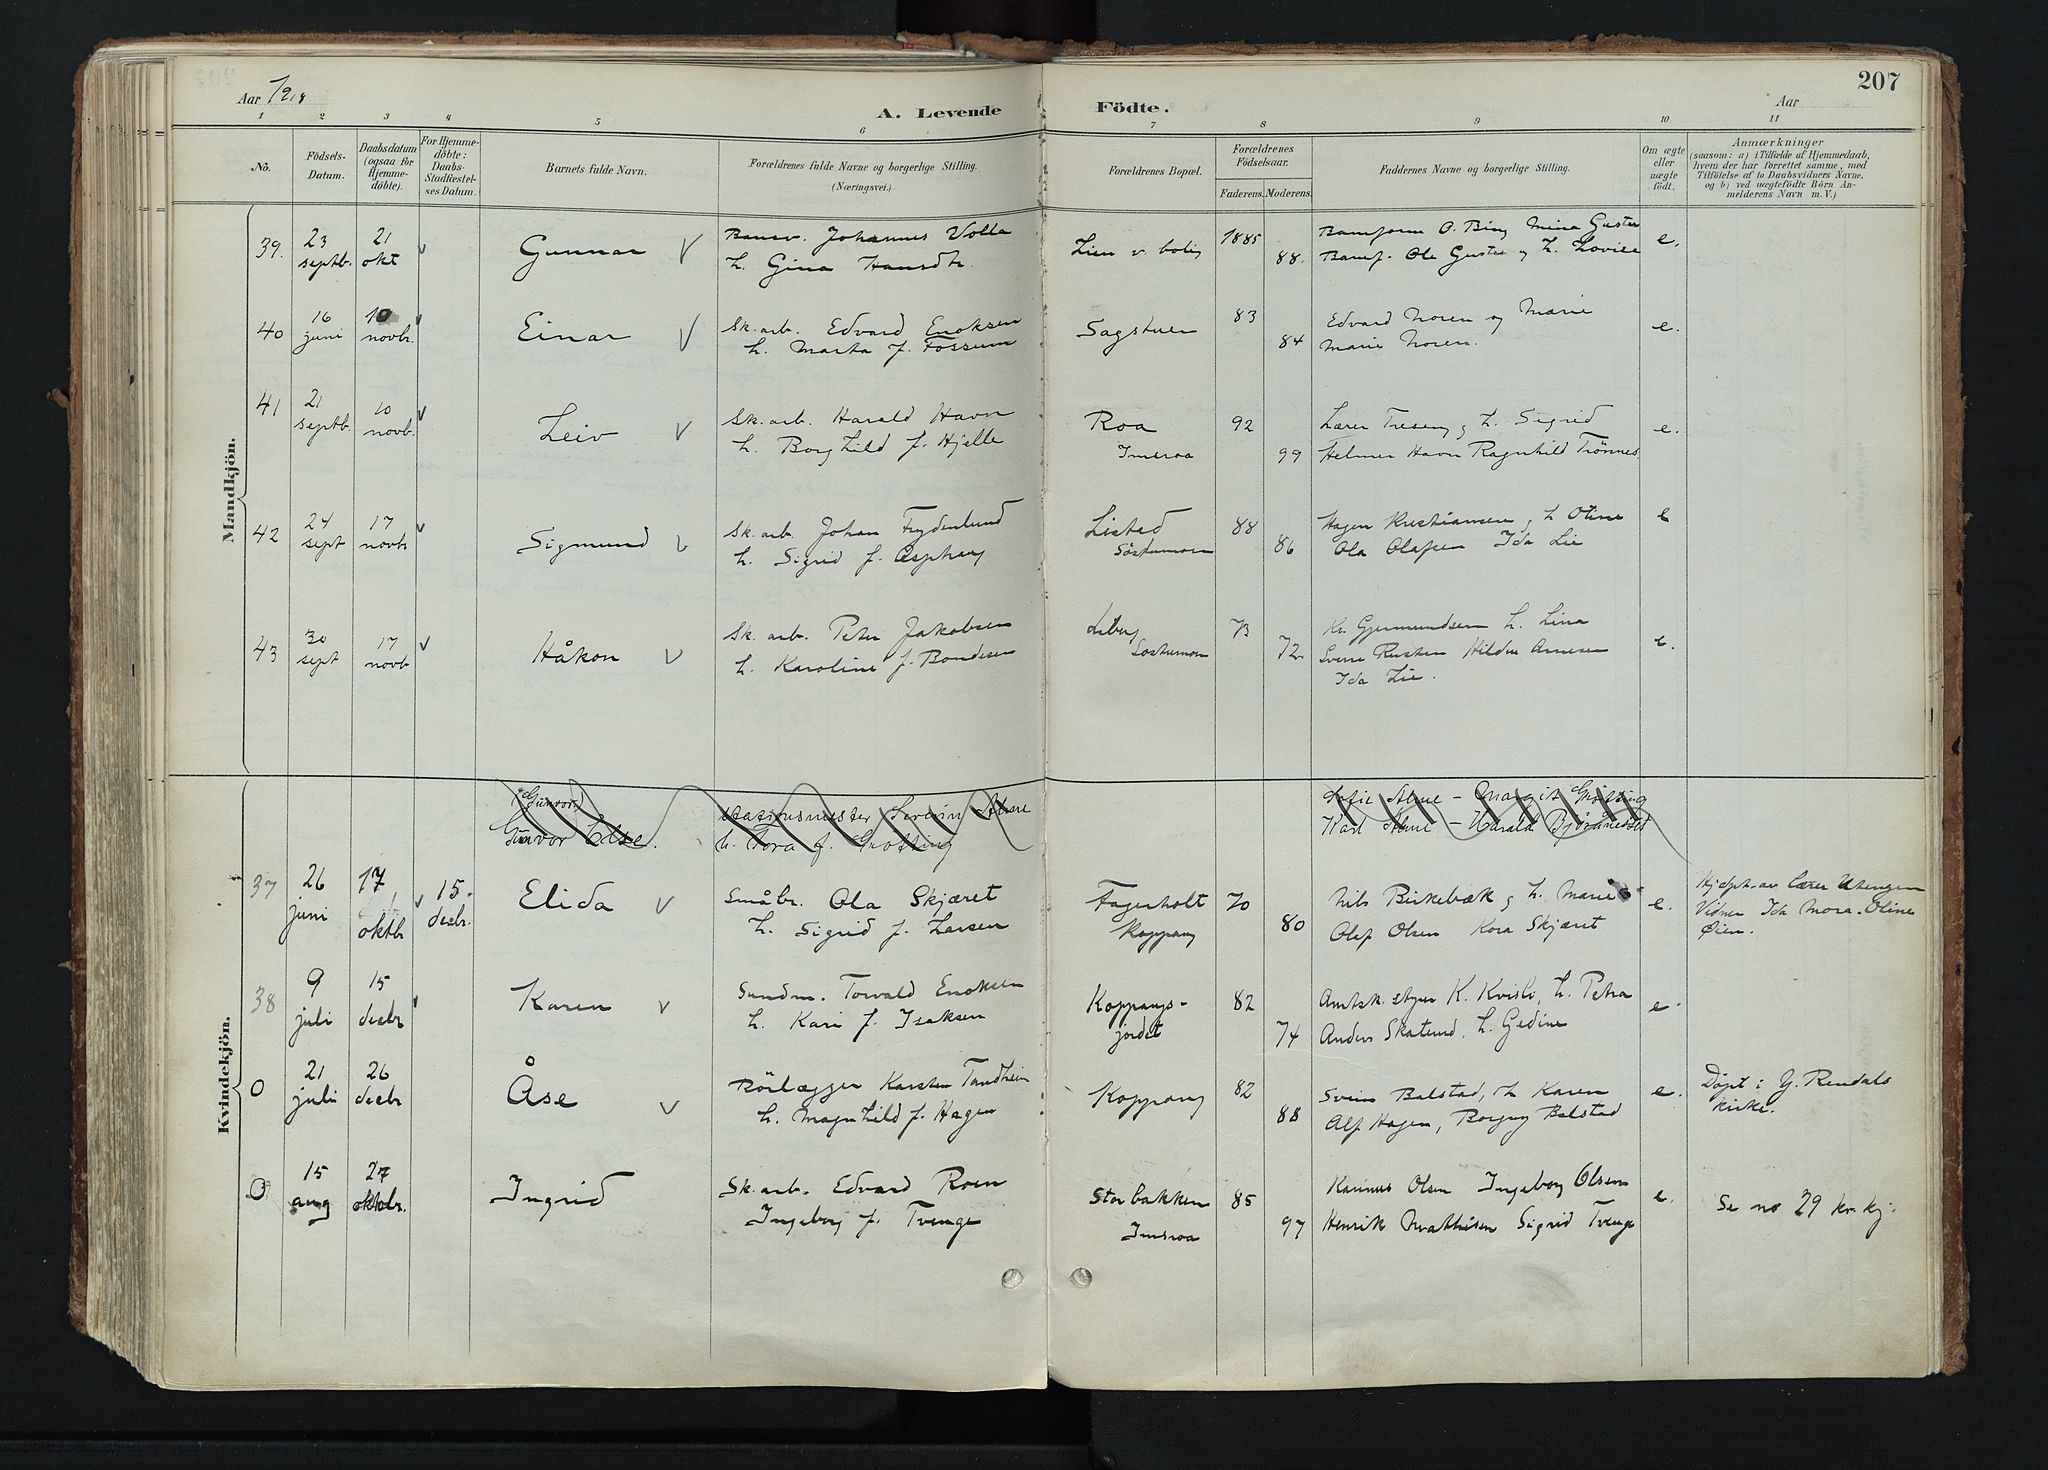 207
Aar 1918
A. Levende Födte.
Aar
1 2 3 4 5 6 7 8 9 10 11
No.
Födsels-Datum.
Daabsdatum (ogsaa for Hjemme-döbte).
For Hjemme-döbte: Daabs-Stadfæstel-ses Datum.
Barnets fulde Navn.
Forældrenes fulde Navne og borgerlige Stilling.
(Næringsvei.)
Forældrenes Bopæl.
Forældrenes Födselsaar.
Faderens. Moderens.
Faddernes Navne og borgerlige Stilling.
Om ægte eller uægte födt.
Anmærkninger
(saasom: a) i Tilfælde af Hjemmedaab,
hvem der har forrettet samme, med
Tilföielse af to Daabsvidners Navne.
og b) ved uægtefödte Börn An-
melderens Navn m. V.)
Mandkjön.
39. 23 septb. 21 okt Gunnar
Johannes Volla
h. Gina Hansdtr.
Lien v. bolig 1885 88.
O. Bing Mina
Ole h. Lovise
e.
40 16 juni 10 novbr. Einar
Sk. arb. Edvard Enoksen
h. Marta f. Fossum
Sagstuen 83 84
Edvard Noren og Marie
Marie Noren.
e.
41 21 septb. 10 novb. Leiv
Sk. arb. Harald Havn
h. Borghild f. Hjelle
Roa
Imsroa
92 99
Lærer og h. Sigrid
Helmer Havn Ragnhild Trönnes
e.
42 24 sept 17 novbr Sigmund
Sk. arb. Johan Frydenlund
h. Sigrid f. Asphaug
Listad
88 86
Hagen Kristiansen og h. Oline
Ola Olafsen Ida Lie
e
43 30 sept 17 novb Håkon
Sk. arb. Peter Jakobsen
h. Karoline f. Bondesen
73 72
Kr. Gjermundsen h. Lina
Sverre Hilda Arnesen
Ida Lie.
e.
Kvindekjön.
(Gunvor)
Gunvor Else.
Stationsmester Severin Alme
h. Tora f. Grötting
Sofie Alme - Margit Grötting
Karl Alme - Harald
37 26 juni 17 oktbr 15 decbr. Elida
Småbr. Ola Skjæret
h. Sigrid f. Larsen
Fagerholt
Koppang
70 80
Nils Birkebæk og h. Marie
Olaf Olsen Kora Skjæret
e.
Hjdpt. av lærer Utengen
Vidner Ida Mora. Oline
Øien.
38 9 juli 15 decbr Karen
Torvald Enoksen
h. Kari f. Isaksen
Koppangs-
jordet
82 74
K. Kvisle, h. Petra
Anders h. Gedine
e.
0 21 juli 26 decbr Åse
Rörlægger Karsten Tandhein
h. Magnhild f. Hagen
Koppang 82 88
Svein Balstad, h. Karen
Alf Hagen, Borgny Balstad
e.
Döpt i Y. Rendals
kirke.
0 15 aug 27 oktobr. Ingrid
Sk. arb. Edvard Roen
Ingeborg f. Tvenge
Storbakken
Imsroa
85 97
Olsen Ingeborg Olsen
Henrik Mathisen Sigrid Tvenge
e.
Se no 29 kv. kj.